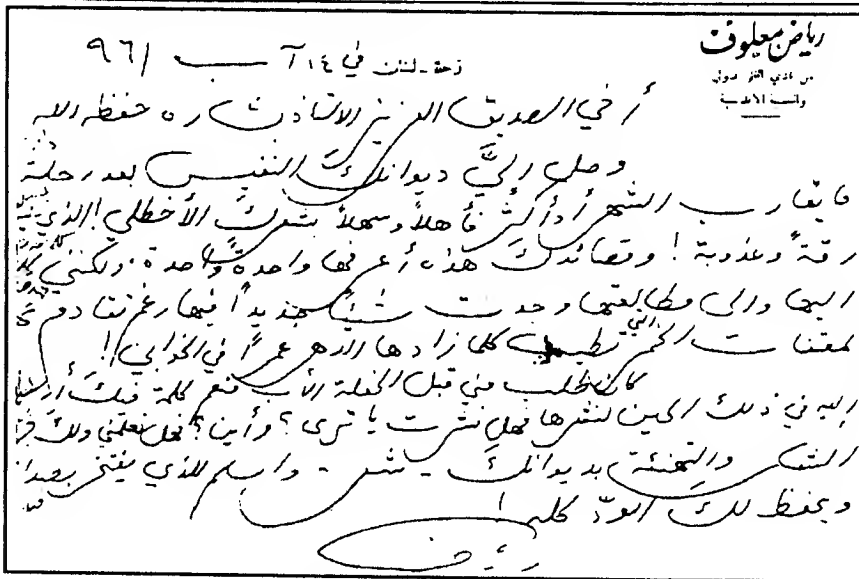 رياض معلوف
من نادي القلم الدولي
زحلة - لبنان في ١٤ آب ٩٦١
أخي الصديق العزيز الاستاذ حفظه الله
وصل اليَّ ديوانك النفيس بعد رحلة
ما يقارب الشهر أو أكثر فأهلاً وسهلاً بشعرك الأخطلي! الذي
رقةً وعذوبة! وقصائدك هذه أعرفها واحدةً واحدة. ولكنني
اليها والى مطالعتها وجدت شيئاً جديداً فيها رغم تقادم
لمعتقات الخمر التي تطيب كلما زادها الدهر عمراً في الخوابي!
كان طلب مني قبل الحفلة الأب كلمة فيك
اليه في ذلك الحين لنشرها فهل نشرت يا ترى؟ وأين؟ فهل تعلمني ولك
الشكر والتهنئة بديوانك - شعر - واسلم للذي يفتخر
ويحفظ لك الودّ كله!
رياض